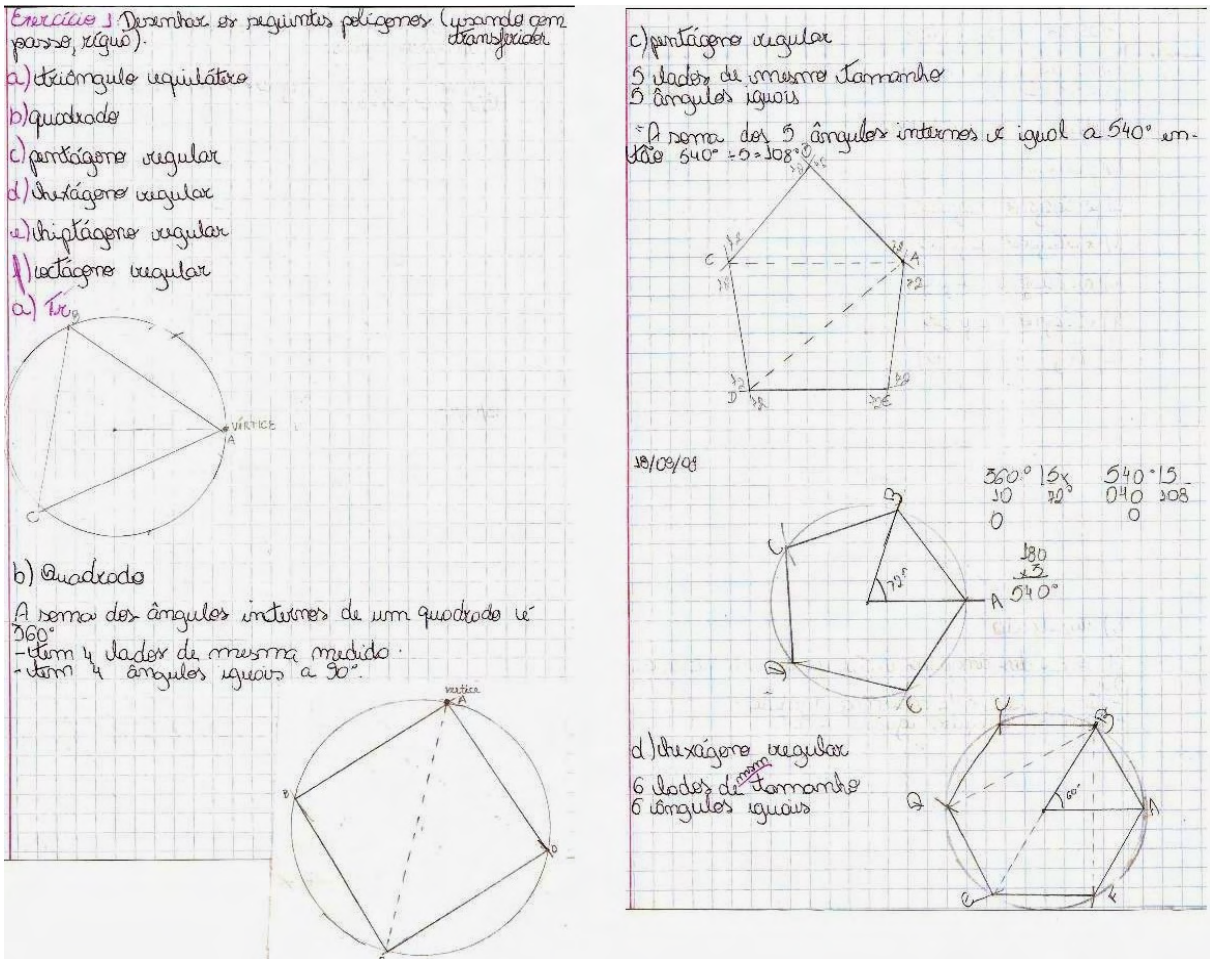 Exercício 1 Desenhar os seguintes polígonos (usando com
passo, régua). transferidor
a) triângulo equilátero
b) quadrado
c) pentágono regular
d) hexágono regular
e) hiptágono regular
f) octágono regular
a) Tr
B
VÉRTICE
A
C
b) Quadrado
A soma dos ângulos internos de um quadrado é
360°
- tem 4 lados de mesma medida.
- tem 4 ângulos iguais a 90°.
vertice
A
B
D
C
c) pentágono regular
5 lados de mesmo tamanho
5 ângulos iguais
A soma dos 5 ângulos internos é igual a 540° en-
tão 540° ÷ 5 = 108°
C
A
72
D
E
18/09/09
360° 5
10 72°
0
540° 5
040 108
0
180
x3
540°
B
C
72°
A
D
E
d) hexágono regular
6 lados de msm tamanho
6 ângulos iguais
C
B
60°
D
A
E
F